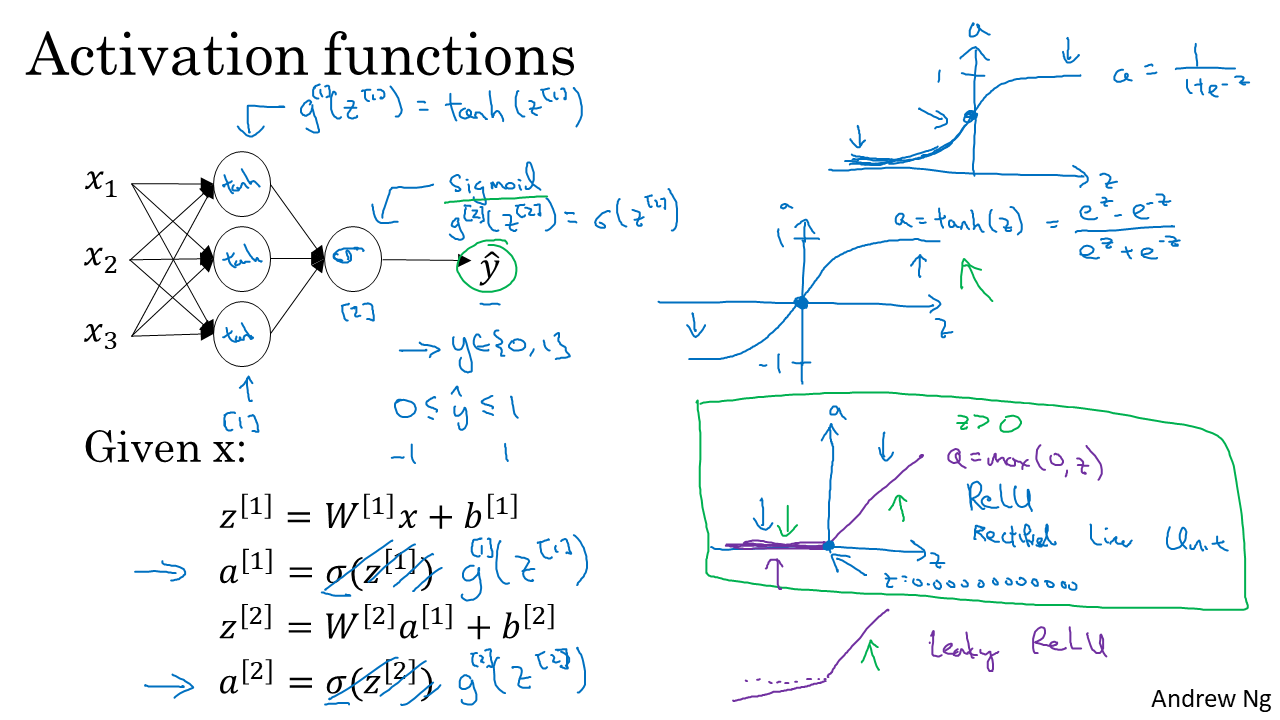 Activation functions
g^[1](z^[1]) = tanh(z^[1])
x₁
x₂
x₃
tanh
tanh
tanh
σ
sigmoid
g^[2](z^[2]) = σ(z^[2])
ŷ
[2]
[1]
→ y∈{0,1}
0 ≤ ŷ ≤ 1
-1 1
Given x:
z^[1] = W^[1]x + b^[1]
⇒ a^[1] = σ(z^[1]) g^[1](z^[1])
z^[2] = W^[2]a^[1] + b^[2]
⇒ a^[2] = σ(z^[2]) g^[2](z^[2])
a
1
z
a = 1/(1+e^-z)
a
1
-1
z
a = tanh(z) = (e^z - e^-z)/(e^z + e^-z)
a
z
z > 0
a = max(0, z)
ReLU
Rectified Linear Unit
z=0.00000000000
Leaky ReLU
Andrew Ng